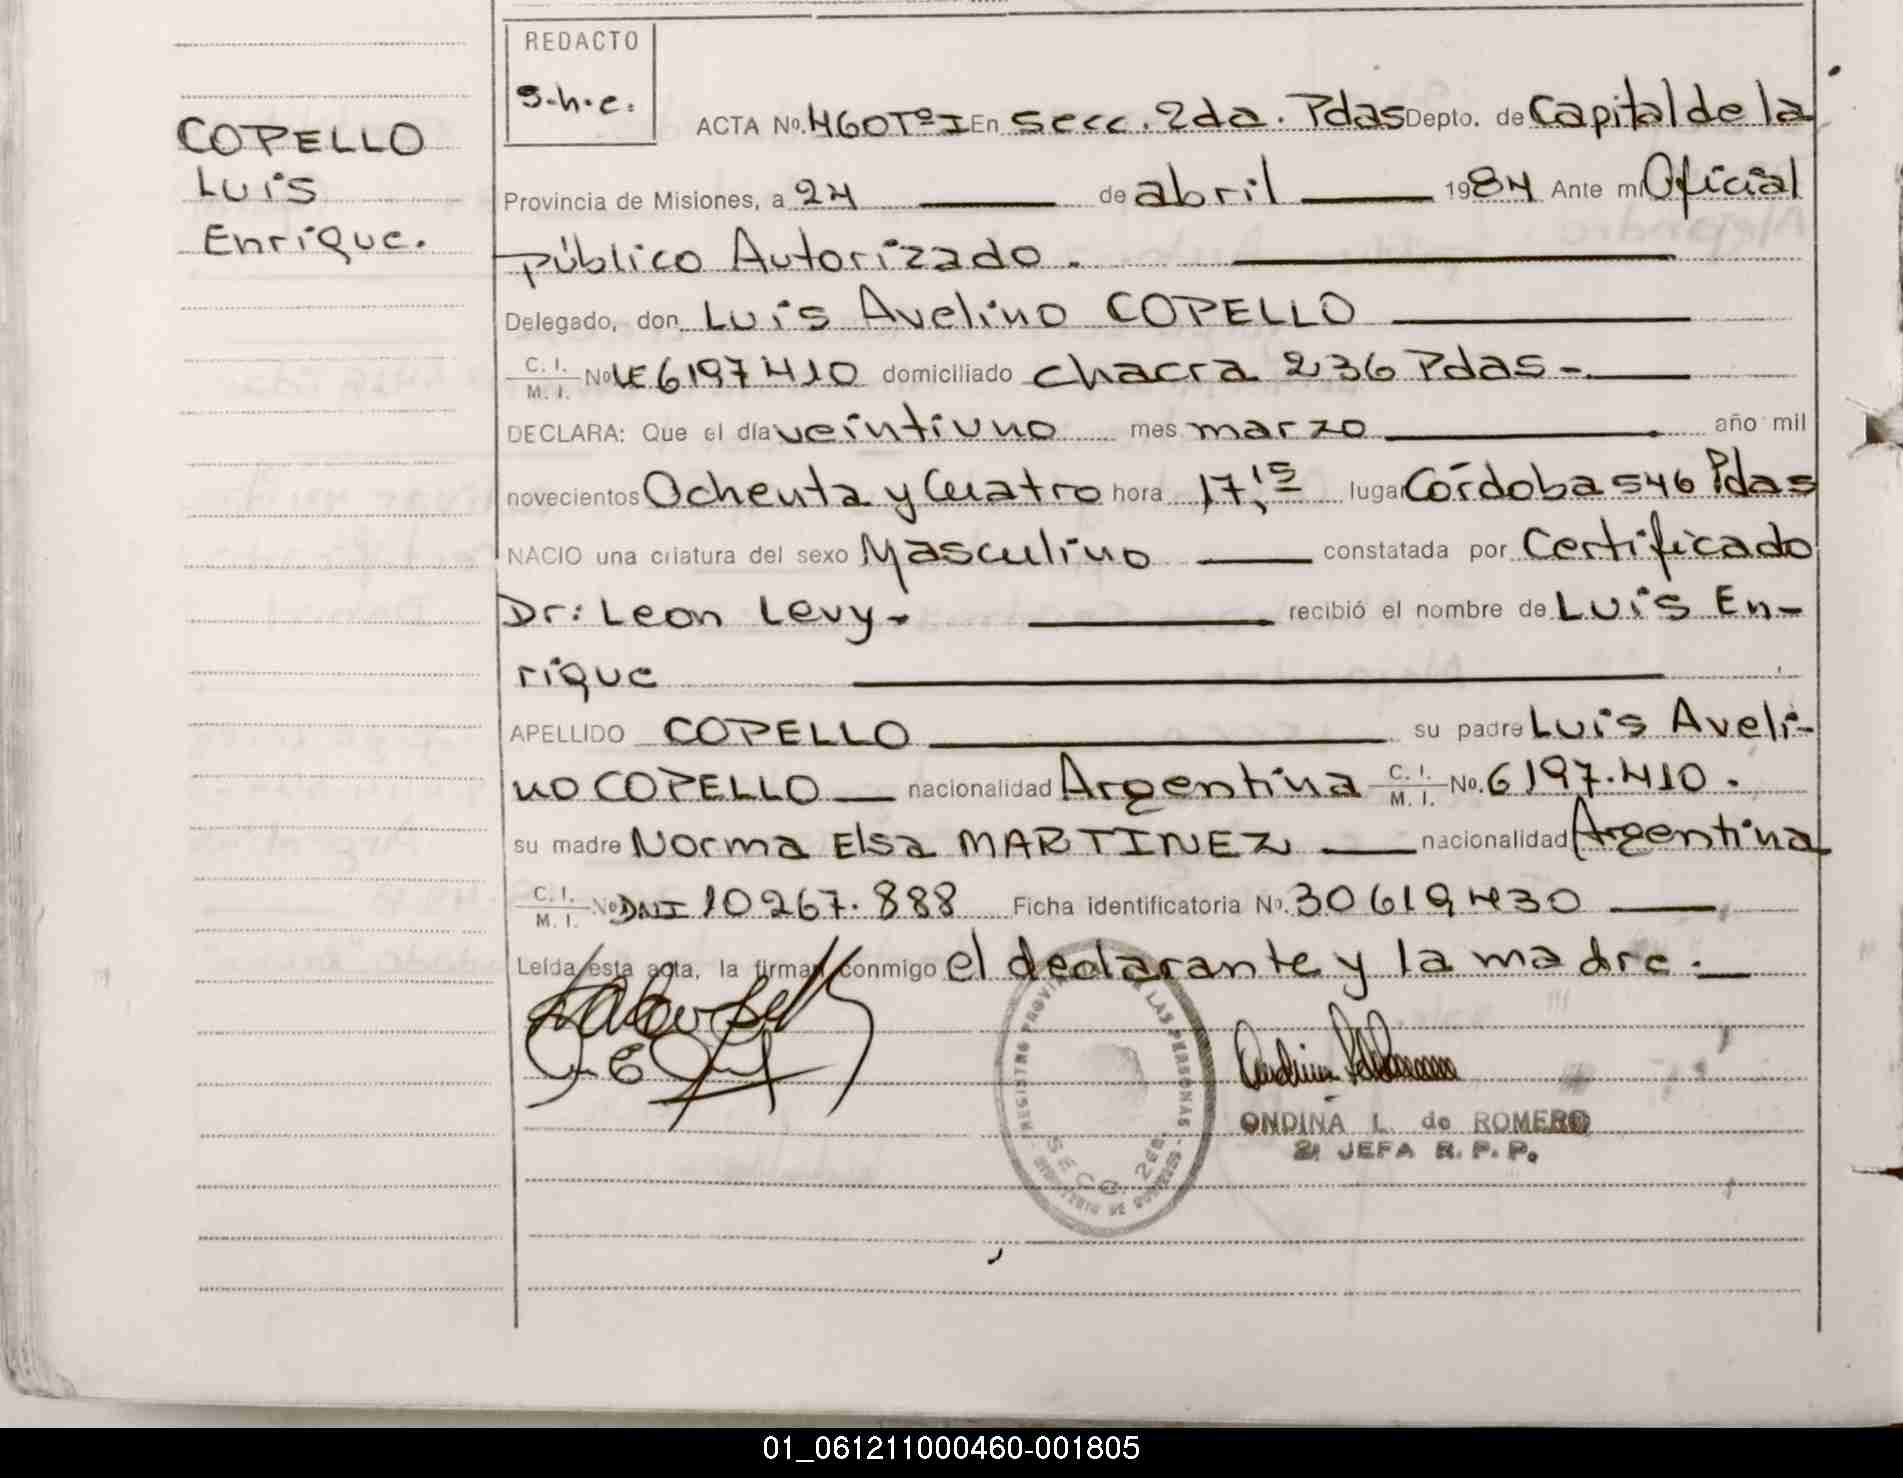 REDACTO
S.h.c.
COPELLO
Luis
Enrique.
ACTA No. 460 Tº I En Secc. 2da. Pdas Depto. de Capital de la
Provincia de Misiones, a 24 de abril 1984 Ante mi Oficial
público Autorizado.
Delegado, don Luis Avelino COPELLO
C. I. / M. I. No LE 6197410 domiciliado chacra 236 Pdas-
DECLARA: Que el día veintiuno mes marzo año mil
novecientos Ochenta y Cuatro hora 17,15 lugar Córdoba 546 Pdas
NACIO una criatura del sexo Masculino constatada por Certificado
Dr: Leon Levy- recibió el nombre de Luis En-
rique
APELLIDO COPELLO su padre Luis Aveli-
no COPELLO nacionalidad Argentina C. I. / M. I. No. 6197.410.
su madre Norma Elsa MARTINEZ nacionalidad Argentina
C. I. / M. I. No DNI 10267.888 Ficha identificatoria No. 30619430
Leída esta acta, la firman conmigo el declarante y la madre.
REGISTRO PROVI LAS PERSONAS
SECC. 2da.
ONDINA L. de ROMERO
2ª JEFA R. P. P.
01_061211000460-001805